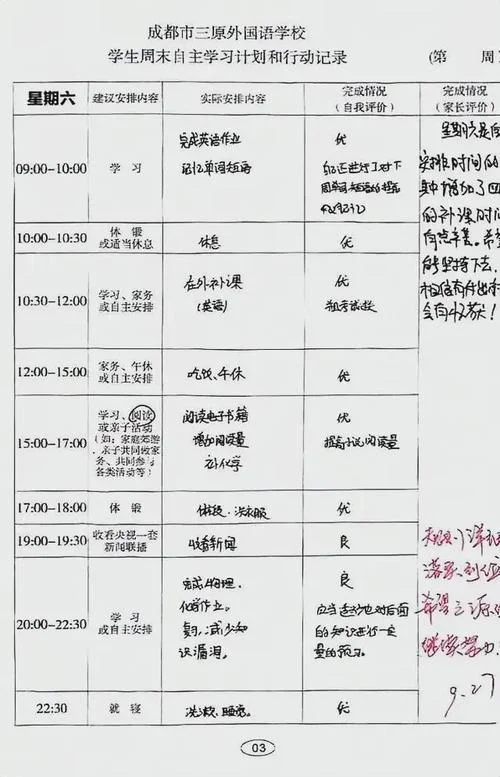 成都市三原外国语学校
学生周末自主学习计划和行动记录
(第 周
星期六 建议安排内容 实际安排内容 完成情况 (自我评价) 完成情况 (家长评价)
09:00-10:00 学 习
完成英语作业
记忆单词短语
优
10:00-10:30 休 锻
或适当休息
休息
优
10:30-12:00 学习、家务
或自主安排
在外补课
(英语)
优
12:00-15:00 家务、午休
或自主安排
吃饭、午休
优
15:00-17:00 学习、阅读
或亲子活动
(如: 家庭郊游、
亲子共同做家
务、共同参与
各类活动等)
阅读电子书籍
增加阅读量
补化学
优
提高小说阅读量
17:00-18:00 休 锻
休锻、洗衣服
优
19:00-19:30 收看央视一套
新闻联播
收看新闻
良
20:00-22:30 学习
或自主安排
完成物理、
化学作业。
复习、减少知
识漏洞。
良
应当适当地对后面
的知识进行一定
量的预习。
22:30 就 寝
洗漱、睡觉。
优
星期六是自
安排时间的
的补课时间
能坚持下去,
会有收获!
希望
继续努力
9.27
03